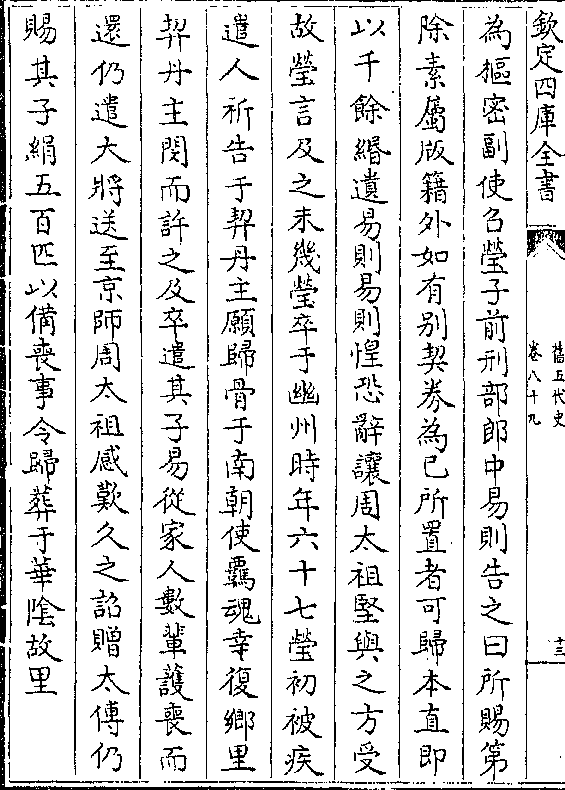 欽定四庫全書
舊五代史
卷八十九
十三
為樞密副使召瑩子前刑部郎中易則告之曰所賜第
除素屬版籍外如有别契券為已所置者可歸本直即
以千餘緡遺易則易則惶恐辭讓周太祖堅與之方受
故瑩言及之未幾瑩卒于幽州時年六十七瑩初被疾
遣人祈告于契丹主願歸骨于南朝使羈魂幸復鄉里
契丹主閔而許之及卒遣其子易從家人數輩護喪而
還仍遣大將送至京師周太祖感歎久之詔贈太傅仍
賜其子絹五百匹以備喪事令歸葬于華陰故里